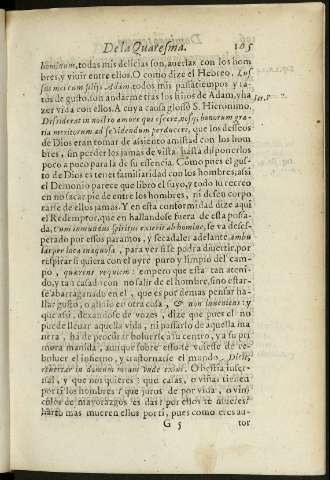 De la Quaresma. 105
hominum, todas mis delicias son, auerlas con los hom
bres, y viuir entre ellos. O como dize el Hebreo. Lu
sus mei cum filijs Adam, todos mis passatiempos y ra-
tos de gusto, son andarme tras los hijos de Adam, y ha
zer vida con ellos. A cuya causa glosso S. Hieronimo. Ser. P.
Desiderat in nostro amore quiescere, nosq; honorum gra-
tia meritorum ad se videndum perducere, que los desseos
de Dios eran tomar de assiento amistad con los hom
bres, sin perder los jamas de vista hasta disponerlos
poco a poco para la de su essencia. Como pues el gus-
to de Dios es tener familiaridad con los hombres, assi
el Demonio parece que libro el suyo, y todo su recreo
en no sacar pie de entre los hombres, ni desencorpo
rarse de ellos jamas. Y en esta conformidad dize aqui
el Redemptor, que en hallandose fuera de esta possa-
da, Cum inmundus spiritus exierit ab homine, se va deses-
perado por essos paramos, y secadales adelante, ambu
lat per loca inaquosa, para ver si se podra diuertir, por
respirar si quiera con el ayre puro y limpio del cam-
po, quærens requiem: empero que esta tan ateni-
do, y tan casado con no salir de el hombre, sino estar-
se abarraganado en el, que es por demas pensar ha-
llar gusto, o aliuio en otra cosa, & non inueniens: y
que assi, dexandose de vozes, dize que pues el no
puede lleuar aquella vida, ni passarlo de aquella ma
nera, ha de procurar boluerse a su centro, y a su pri
mera manida, aunque sobre esso se vuiesse de re-
boluer el infierno, y trastornarse el mundo. Dicit,
reuertar in domum meam vnde exiui. O bestia infer-
nal, y que nos quieres: que casas, o viñas tienen
por ti los hombres? que juros de por vida, o vin
culos de mayorazgos es das? por ellos te mueres,
harto mas mueren ellos por ti, pues como eres au-
G 5 tor